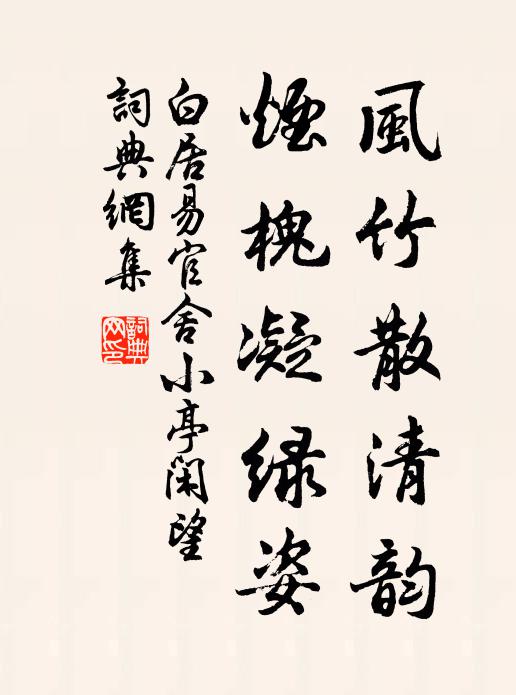 風竹散清韵
煙槐凝绿姿
白居易官舍小亭閑望
詞典網集
詞典网印